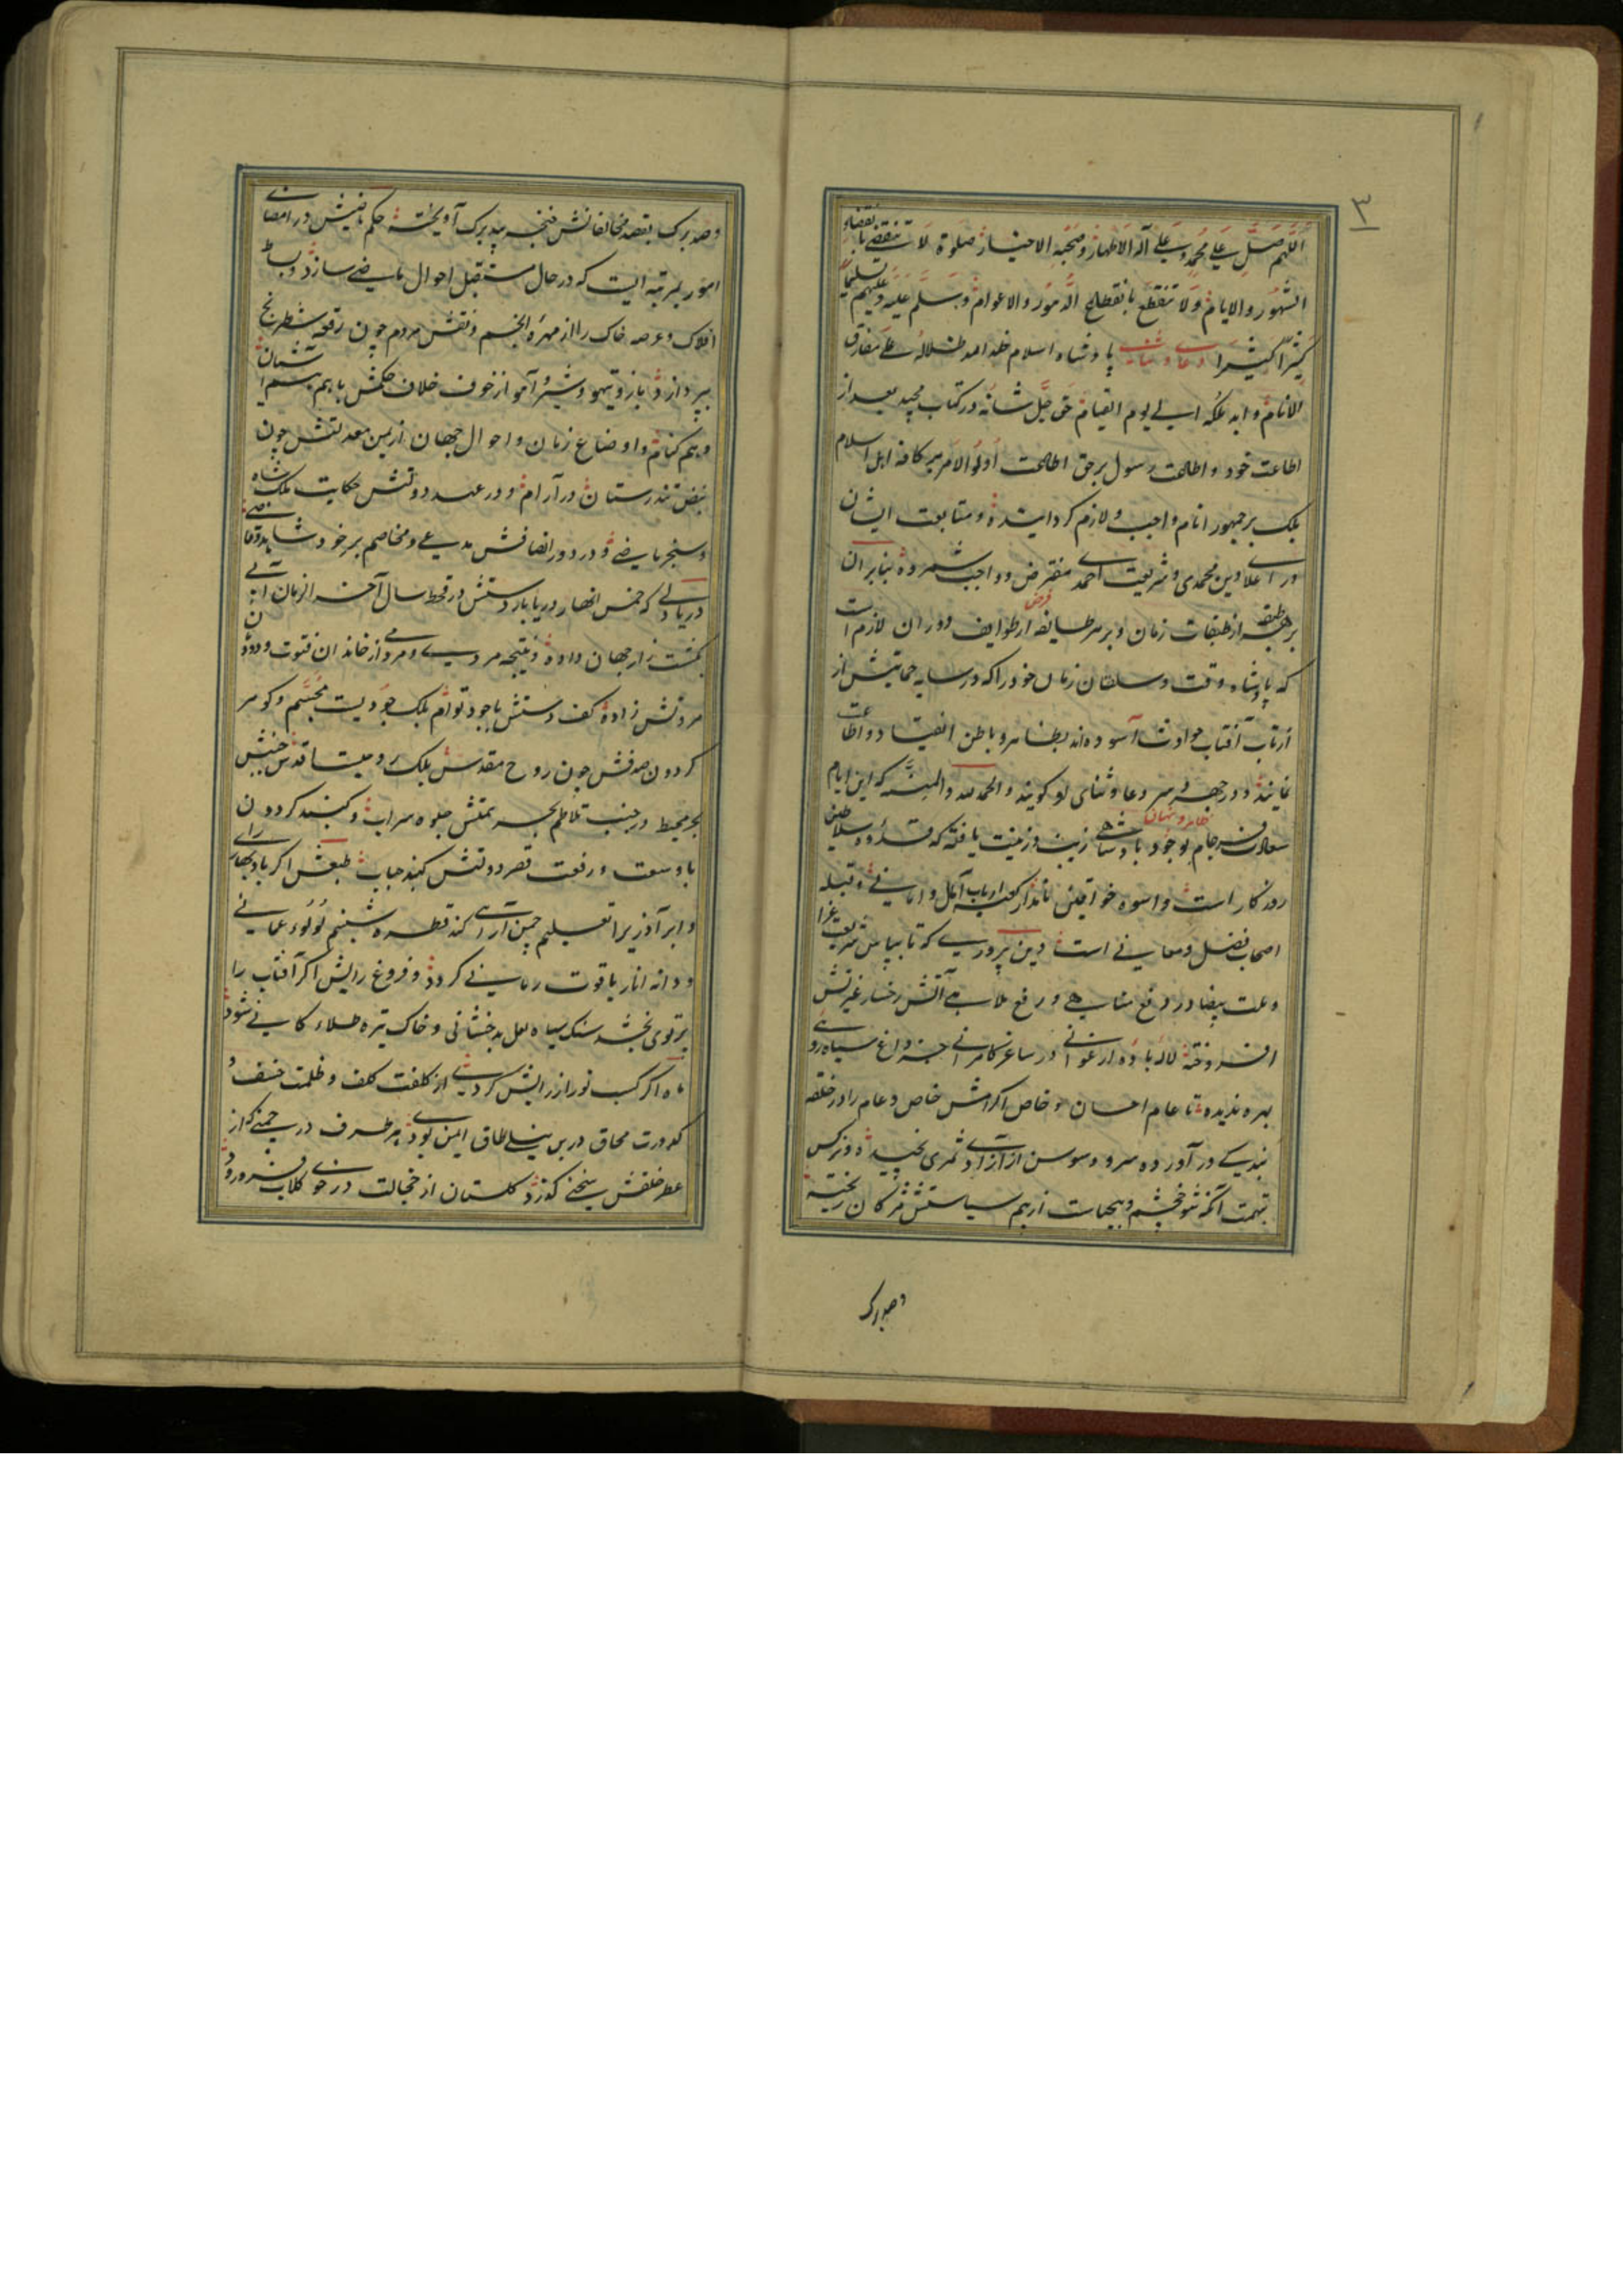 ۳
اللهم صل علی محمد و علی آله الاطهار و صحبه الاخیار صلوة لا تنقضی بانقضاء
الشهور والایام ولا تنقطع بانقطاع الدهور والاعوام وسلم علیه وعلیهم تسلیما
کثیرا کثیرا پادشاه اسلام خلد الله ظلاله علی مفارق
الانام و ابد ملکه الی یوم القیام حق جل شانه در کتاب مجید بعد از
اطاعت خود و اطاعت رسول برحق اطاعت اولو الامر بر کافه اهل اسلام
بلک بر جمهور انام واجب و لازم کردانیده و متابعت ایشان
در اعلای دین محمدی و شریعت احمدی مفترض و واجب شمرده بنابران
بر هر طبقه از طبقات زمان و بر هر طایفه از طوایف دوران لازم است
فرض
که پادشاه وقت و سلطان زمان خود را که در سایه حمایتش از
ازتاب آفتاب حوادث آسوده‌اند بظاهر و باطن انقیاد و اطاعت
نمایند و در جهر و سر دعا و ثنای او کویند و الحمد لله والمنه که این ایام
ظاهر و نهان
سعادت فرجام بوجود پادشاهی زیب و زینت یافته که قدوه سلاطین
روزکار است و اسوه خواقین نامدار کعبه ارباب آمال و امانی و قبله
اصحاب فضل و معانی است دین پروری که تا بپاس شریعت غرا
و ملت بیضا در دفع مناهی و رفع ملاهی آتش رخسار غیرتش
افروخته لاله با باده ارغوانی در ساغر کامرانی جز داغ سیاه روی
بهره ندیده تا عام احسان و خاص اکرامش خاص و عام را در حلقه
بندکی در آورده سرو و سوسن از آزادی ثمری نچیده و نرکس
بتهمت آنکه شوخ چشم و بیحیاست از بیم سیاستش مژکان ریخته
وصد برک
وصد برک بقصد مخالفانش خنجر بید برک آویخته حکم ماضیش در امضای
امور بمرتبه ایست که در حال مستقبل احوال ماضی سازد و بساط
افلاک و عرصه خاک را از مهره انجم و نقش مردم چون رقعه شطرنج
بپردازد باز و تیهو و شیر و آهو از خوف خلاف حکمش باهم هم آشیان
و هم کنام و اوضاع زمان و احوال جهان از یمن معدلتش چون
نبض تندرستان در آرام و در عهد دولتش حکایت ملکشاه
و سنجر ماضی و در دور انصافش مدعی و مخاصم بر خود شاهد و قاضی
دریا دلی که خمس انهار دریا بار دستش در قحط سال آخر الزمان آبی
بکشت زار جهان داده و نتیجه مردمی و مرد از خاندان فتوت و دوده
مروتش زاده کف دستش با جود توام بلک جودیست مجسم و کوهر
کردون صدفش چون روح مقدس بلک
بحر محیط در جنب تلاطم بحر همتش جلوه سراب و کنبد کردون
با وسعت و رفعت قصر دولتش کنبد حباب طبعش اکر باد بهار
و ابر آذر را تعلیم چمن آرای کند قطره شبنم لؤلؤ عمانی
و دانه انار یاقوت رمانی کردد و فروغ رایش اکر آفتاب را
پرتوی بخشد سنک سیاه لعل بدخشانی و خاک تیره طلاء کانی شود
ماه اکر کسب نور از رایش کردی از کلفت کلف و ظلمت خسف و
کدورت محاق در ین نیلی طاق ایمن بودی بهر طرف در چمنی کز
عطر خلقش سخنی کذرد کلستان از خجالت در خوی کلاب فرو رود